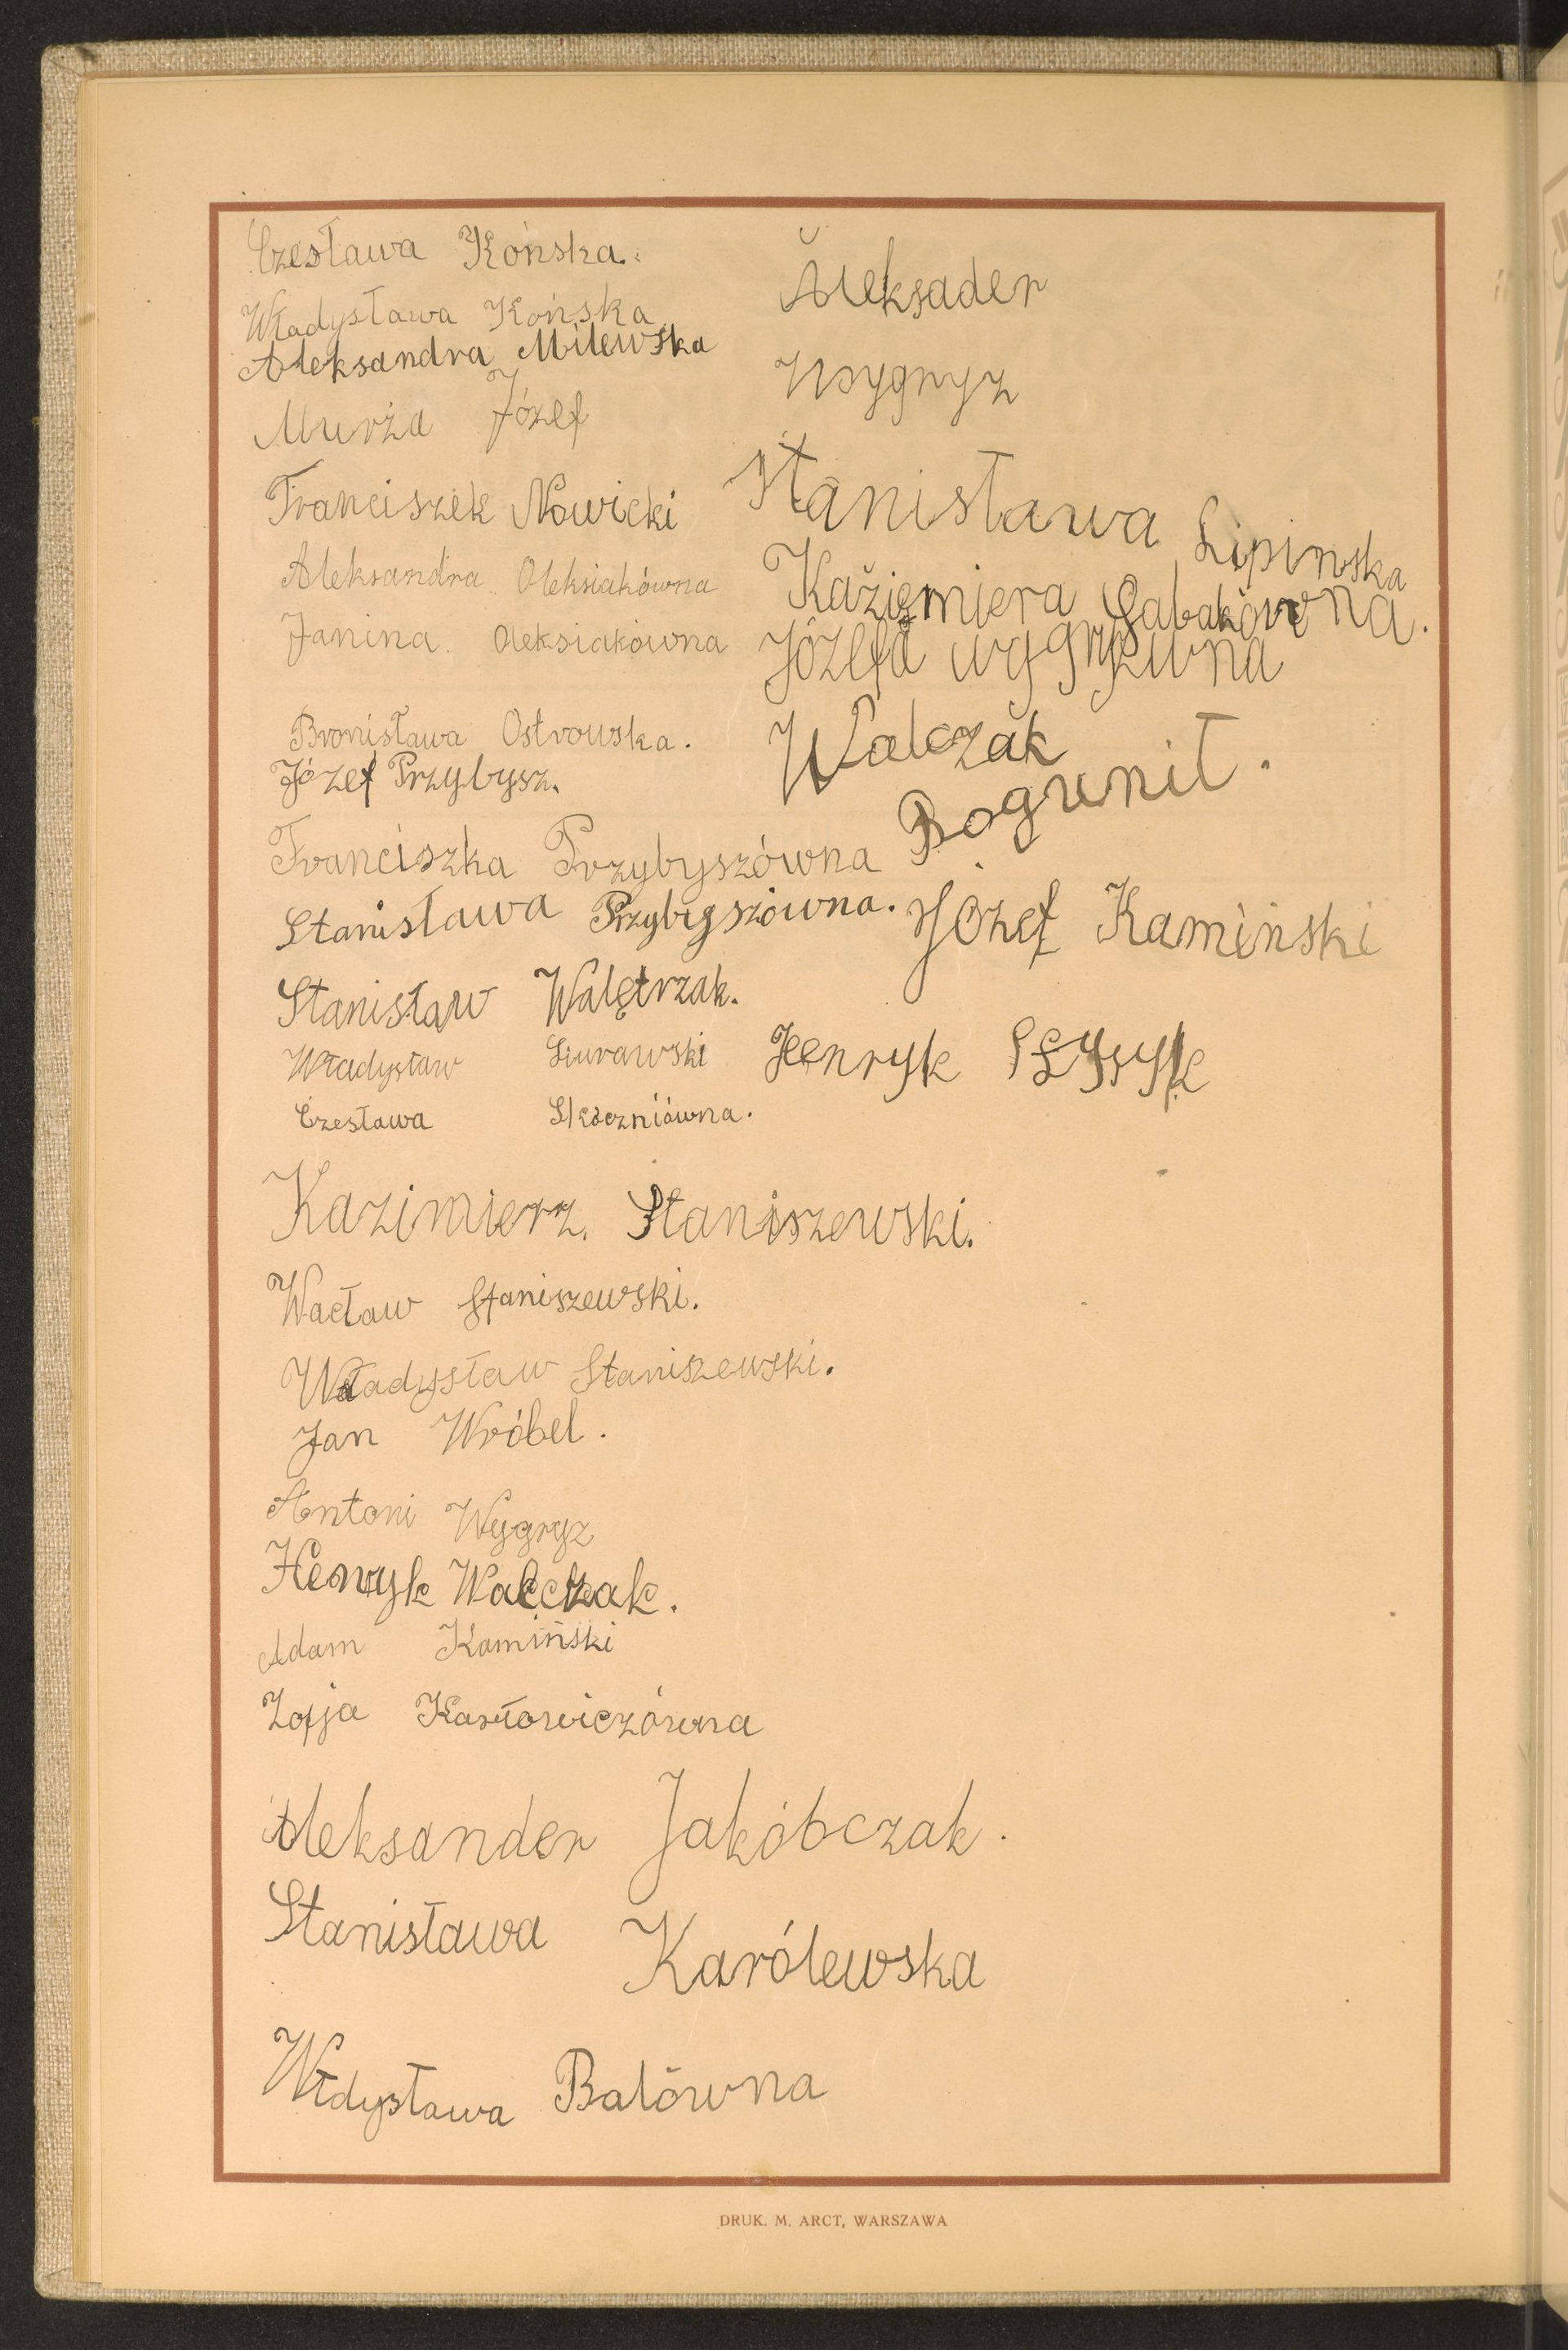 Czesława Końska.
Władysława Końska
Aleksandra Milewska
Murża Józef
Franciszek Nowicki
Aleksandra Oleksiakówna
Janina. Oleksiakówna
Bronisława Ostrowska.
Józef Przybysz.
Franciszka Przybyszówna
Stanisława Przybyszówna.
Stanisław Walętrzak.
Władysław Siurawski
Czesława Skóczniówna.
Kazimierz. Staniszewski.
Wacław Staniszewski.
Władysław Staniszewski.
Jan Wróbel.
Antoni Wygryz
Henryk Walczak.
Adam Kamiński
Zofja Karłowiczówna
Aleksander Jakóbczak.
Stanisława Karólewska
Włdysława Balówna
Aleksader
Wygryz
Stanisława Lipinska
Kaziemiera Gabakówna.
Józefa wygryzuwna
Walczak
Bogumił.
Józef Kamiński
Henryk
DRUK. M. ARCT, WARSZAWA